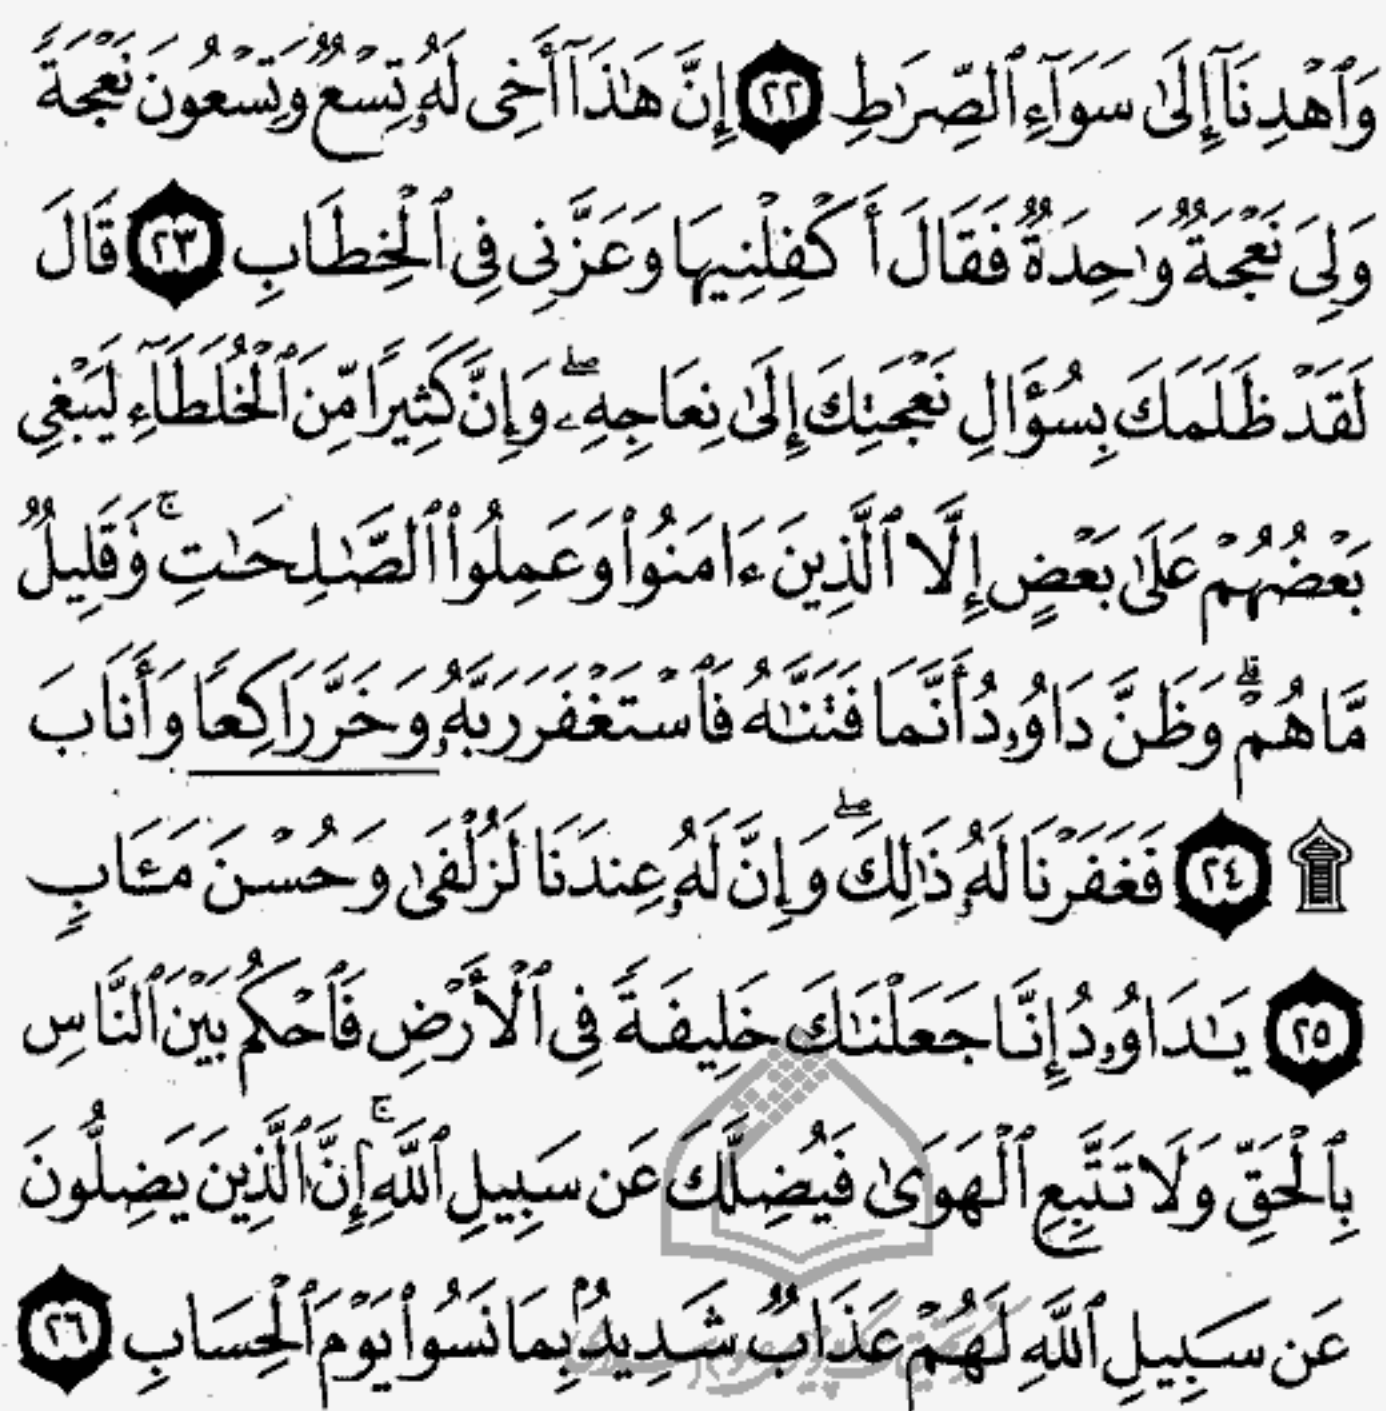 وَٱهۡدِنَآ إِلَىٰ سَوَآءِ ٱلصِّرَٰطِ ٢٢ إِنَّ هَٰذَآ أَخِي لَهُۥ تِسۡعٞ وَتِسۡعُونَ نَعۡجَةٗ
وَلِيَ نَعۡجَةٞ وَٰحِدَةٞ فَقَالَ أَكۡفِلۡنِيهَا وَعَزَّنِي فِي ٱلۡخِطَابِ ٢٣ قَالَ
لَقَدۡ ظَلَمَكَ بِسُؤَالِ نَعۡجَتِكَ إِلَىٰ نِعَاجِهِۦۖ وَإِنَّ كَثِيرٗا مِّنَ ٱلۡخُلَطَآءِ لَيَبۡغِي
بَعۡضُهُمۡ عَلَىٰ بَعۡضٍ إِلَّا ٱلَّذِينَ ءَامَنُواْ وَعَمِلُواْ ٱلصَّٰلِحَٰتِۚ وَقَلِيلٞ
مَّا هُمۡۗ وَظَنَّ دَاوُۥدُ أَنَّمَا فَتَنَّٰهُ فَٱسۡتَغۡفَرَ رَبَّهُۥ وَخَرَّ رَاكِعٗا وَأَنَابَ
۩ ٢٤ فَغَفَرۡنَا لَهُۥ ذَٰلِكَۖ وَإِنَّ لَهُۥ عِندَنَا لَزُلۡفَىٰ وَحُسۡنَ مَـَٔابٖ
٢٥ يَٰدَاوُۥدُ إِنَّا جَعَلۡنَٰكَ خَلِيفَةٗ فِي ٱلۡأَرۡضِ فَٱحۡكُم بَيۡنَ ٱلنَّاسِ
بِٱلۡحَقِّ وَلَا تَتَّبِعِ ٱلۡهَوَىٰ فَيُضِلَّكَ عَن سَبِيلِ ٱللَّهِۚ إِنَّ ٱلَّذِينَ يَضِلُّونَ
عَن سَبِيلِ ٱللَّهِ لَهُمۡ عَذَابٞ شَدِيدُۢ بِمَا نَسُواْ يَوۡمَ ٱلۡحِسَابِ ٢٦